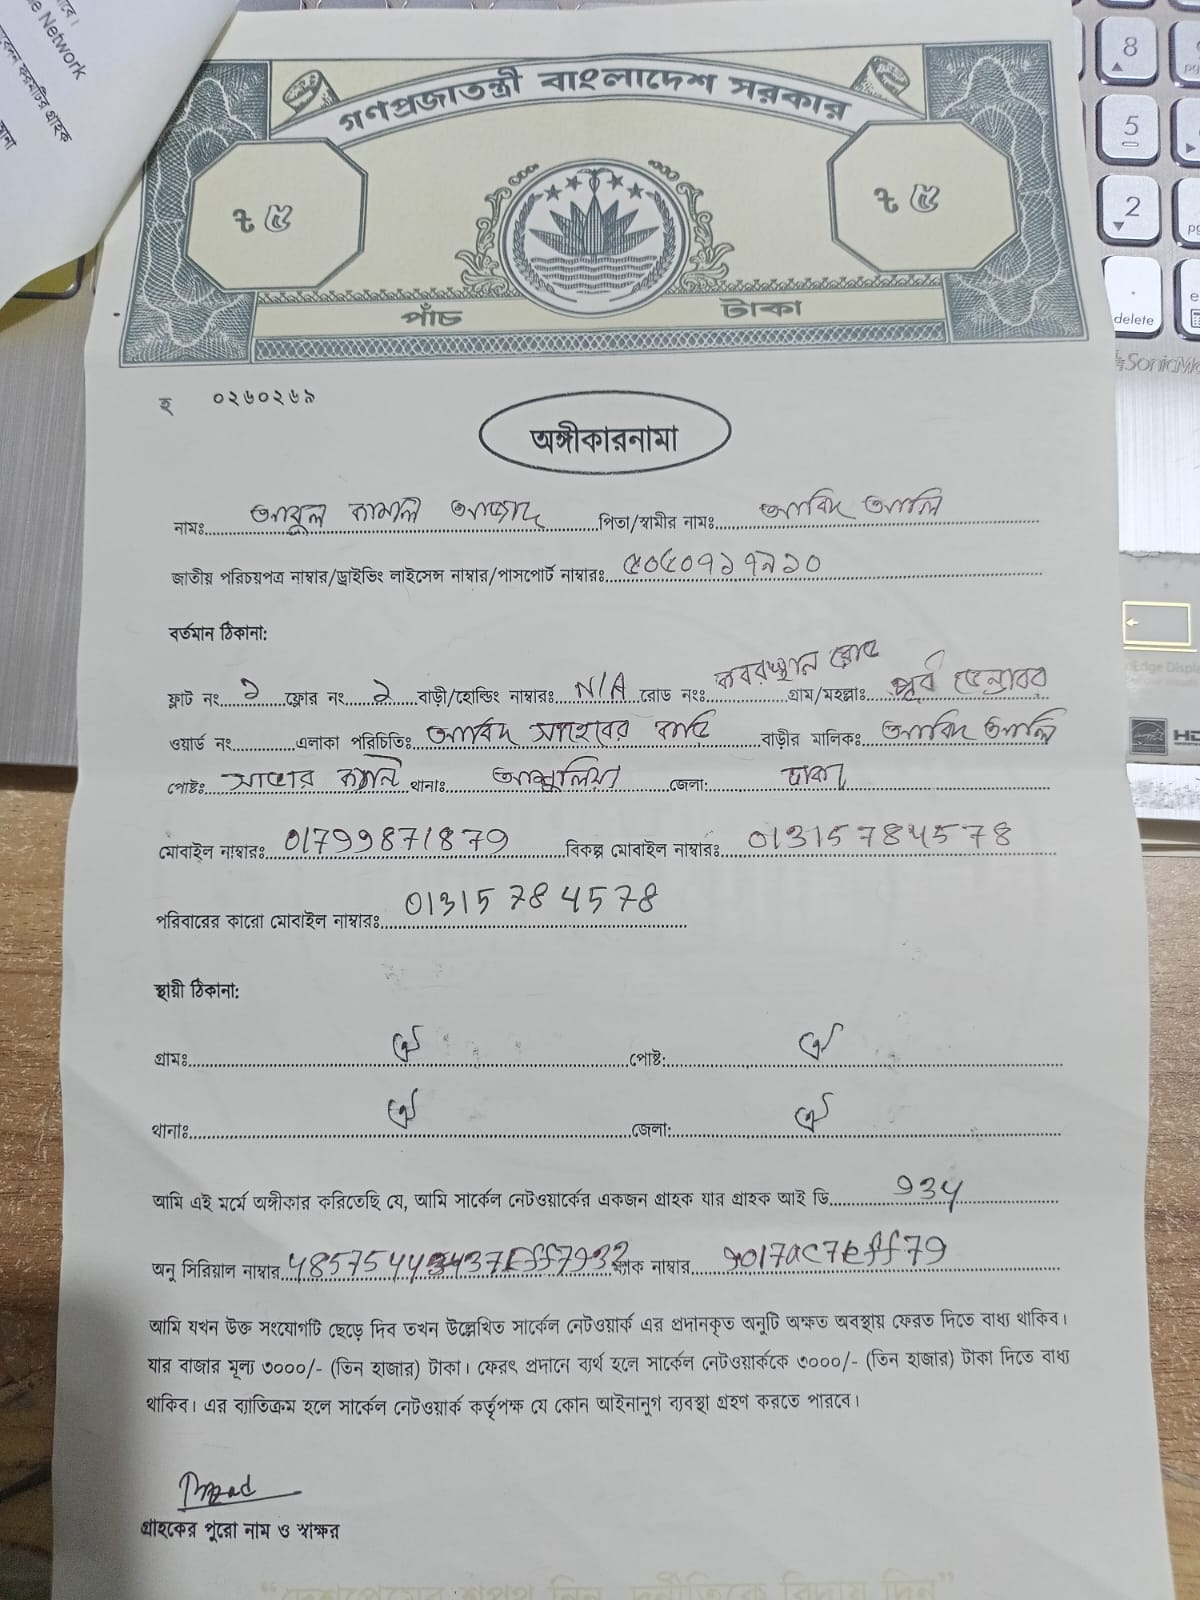 ne Network
গণপ্রজাতন্ত্রী বাংলাদেশ সরকার
৳ ৫ ৳ ৫
পাঁচ টাকা
হ ০২৬০২৬৯
অঙ্গীকারনামা
নামঃ আবুল কালাম আজাদ পিতা/স্বামীর নামঃ আবিদ আলি
জাতীয় পরিচয়পত্র নাম্বার/ড্রাইভিং লাইসেন্স নাম্বার/পাসপোর্ট নাম্বারঃ ৫০৫০৭১৭৯১০
বর্তমান ঠিকানা:
ফ্লাট নং ১ ফ্লোর নং ১ বাড়ী/হোল্ডিং নাম্বারঃ N/A রোড নংঃ কবরস্থান রোড গ্রাম/মহল্লাঃ পূর্ব
ওয়ার্ড নং এলাকা পরিচিতিঃ আবিদ সাহেবের বাড়ি বাড়ীর মালিকঃ আবিদ আলি
পোষ্টঃ সাভার থানাঃ আশুলিয়া জেলা: ঢাকা
মোবাইল নাম্বারঃ 01799871879 বিকল্প মোবাইল নাম্বারঃ 01315784578
পরিবারের কারো মোবাইল নাম্বারঃ 01315784578
স্থায়ী ঠিকানা:
গ্রামঃ ঐ পোষ্ট: ঐ
থানাঃ ঐ জেলা: ঐ
আমি এই মর্মে অঙ্গীকার করিতেছি যে, আমি সার্কেল নেটওয়ার্কের একজন গ্রাহক যার গ্রাহক আই ডি 934
অনু সিরিয়াল নাম্বার ম্যাক নাম্বার 9017ac7eff79
আমি যখন উক্ত সংযোগটি ছেড়ে দিব তখন উল্লেখিত সার্কেল নেটওয়ার্ক এর প্রদানকৃত অনুটি অক্ষত অবস্থায় ফেরত দিতে বাধ্য থাকিব।
যার বাজার মূল্য ৩০০০/- (তিন হাজার) টাকা। ফেরৎ প্রদানে ব্যর্থ হলে সার্কেল নেটওয়ার্ককে ৩০০০/- (তিন হাজার) টাকা দিতে বাধ্য
থাকিব। এর ব্যতিক্রম হলে সার্কেল নেটওয়ার্ক কর্তৃপক্ষ যে কোন আইনানুগ ব্যবস্থা গ্রহণ করতে পারবে।
গ্রাহকের পুরো নাম ও স্বাক্ষর
"দেশপ্রেমের শপথ নিন, দুর্নীতিকে বিদায় দিন"
8
5
2
delete
SonicMa
Edge Displa
HD